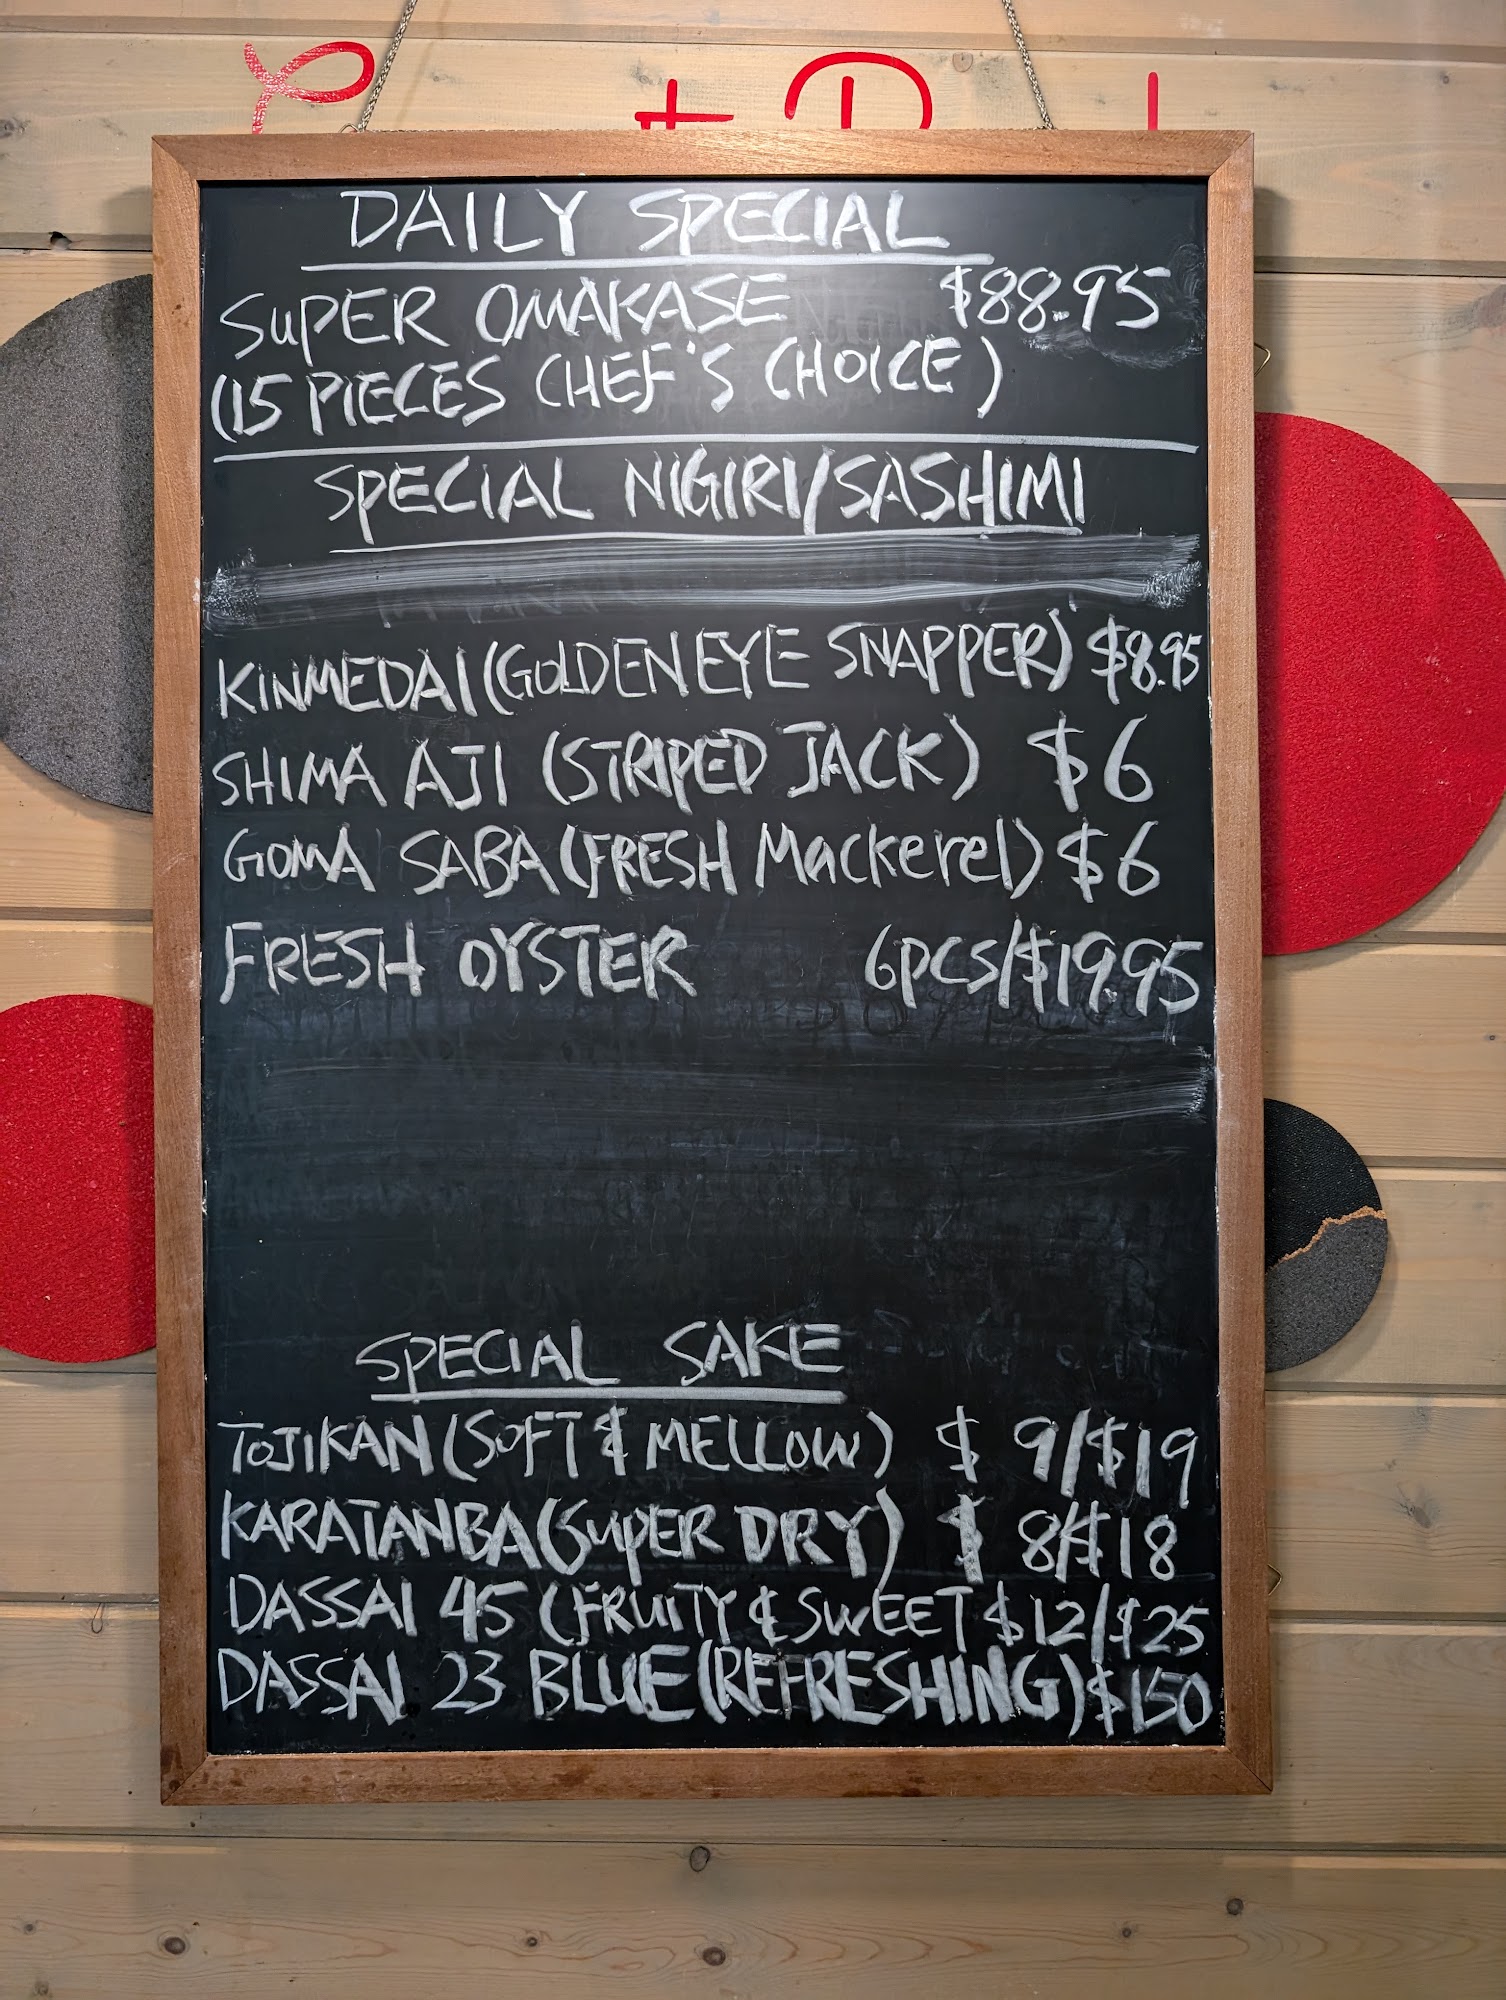 DAILY SPECIAL
SUPER OMAKASE $88.95
(15 PIECES CHEF'S CHOICE)
SPECIAL NIGIRI/SASHIMI
KINMEDAI (GOLDEN EYE SNAPPER) $8.95
SHIMA AJI (STRIPED JACK) $6
GOMA SABA (FRESH Mackerel) $6
FRESH OYSTER 6PCS/$19.95
SPECIAL SAKE
TOJIKAN (SOFT & MELLOW) $ 9/$19
KARATANBA (SUPER DRY) $ 8/$18
DASSAI 45 (FRUITY & SWEET $12/$25
DASSAI 23 BLUE (REFRESHING) $150